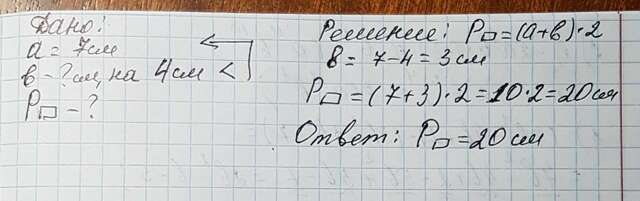 Дано:
a = 7см
в - ? см, на 4см <
P▭ - ?
Решение: P▭ = (a+в)·2
в = 7-4 = 3см
P▭ = (7+3)·2 = 10·2 = 20см
Ответ: P▭ = 20см